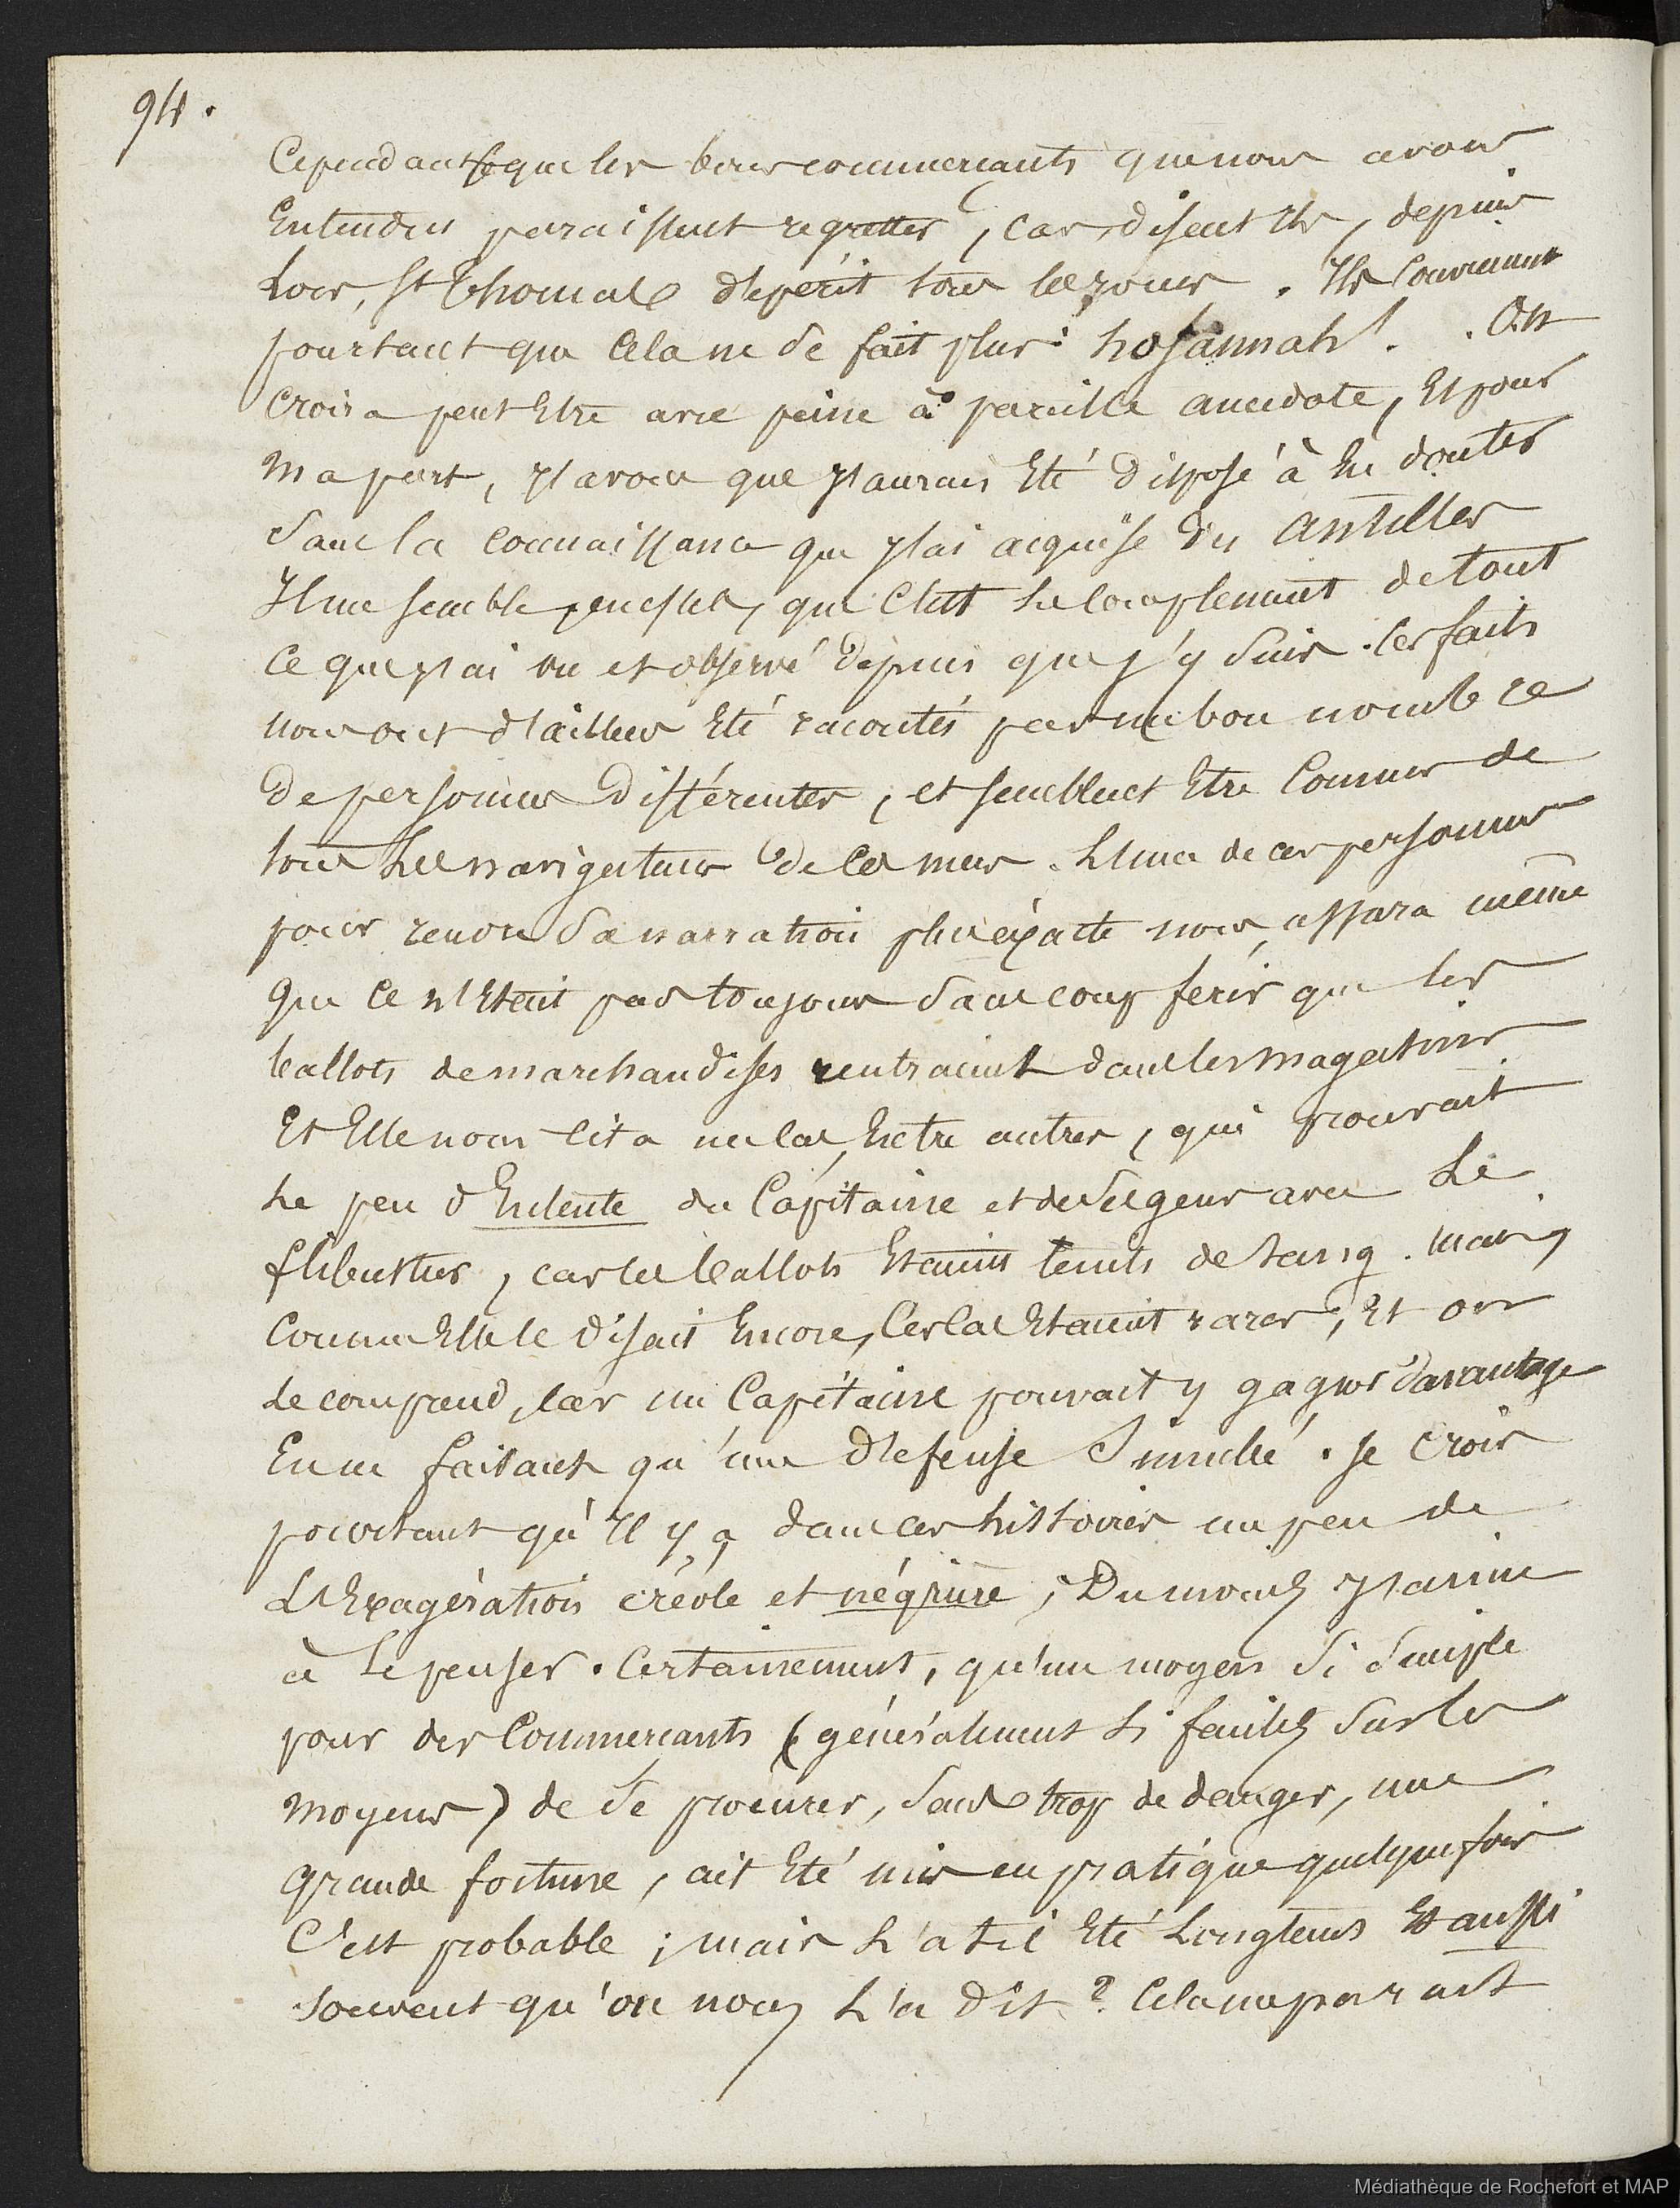 94.
Cependant ce que les bons commerçants que nous avons
Entendus paraissent regretter, car, disent ils, depuis
lors, St Thomas dépérit tous les jours. Ils conviennent
pourtant que cela ne se fait plus: hosannah! . On
croira peut Etre avec peine à pareille anecdote, Et pour
ma part, j'avoue que j'aurais Eté disposé à En douter
Sans la connaissance que j'ai acquise des Antilles
Il me semble, en effet, que C'est Le Complement de tout
Ce que j'ai vu et observé depuis que j'y Suis. Ces faits
nous ont d'ailleurs Eté racontés par un bon nombre
de personnes différentes, et semblent Etre Connus de
tous Les navigateurs de Ces mers. L'une de ces personnes
pour rendre Sa narration plus éxacte nous assura même
que Ce n'Etait pas toujours Sans coup ferir que les
ballots de marchandises rentraient dans les magasins
Et Elle nous Cita un Cas, Entre autres, qui prouvait
Le peu d'Entente du Capitaine et de Ses gens avec Le
flibustier, car les ballots Etaient teints de Sang. mais,
Comme Elle le disait Encore, Ces Cas Etaient rares, Et on
Le comprend, Car un Capitaine pouvait y gagner davantage
En ne faisant qu'une défense Simulée. Je crois
pourtant qu'Il y a dans ces histoires un peu de
L'Exagération créole et négrière, Du moins j'aime
à Le penser. Certainement, qu'un moyen Si Simple
pour des Commerçants (généralement Si faciles Sur les
moyens) de Se procurer, Sans trop de danger, une
grande fortune, ait Eté mis en pratique quelquefois
C'est probable; mais L'a t-il Eté Longtems Et aussi
Souvent qu'on nous L'a dit? Cela me parait
Médiathèque de Rochefort et MAP